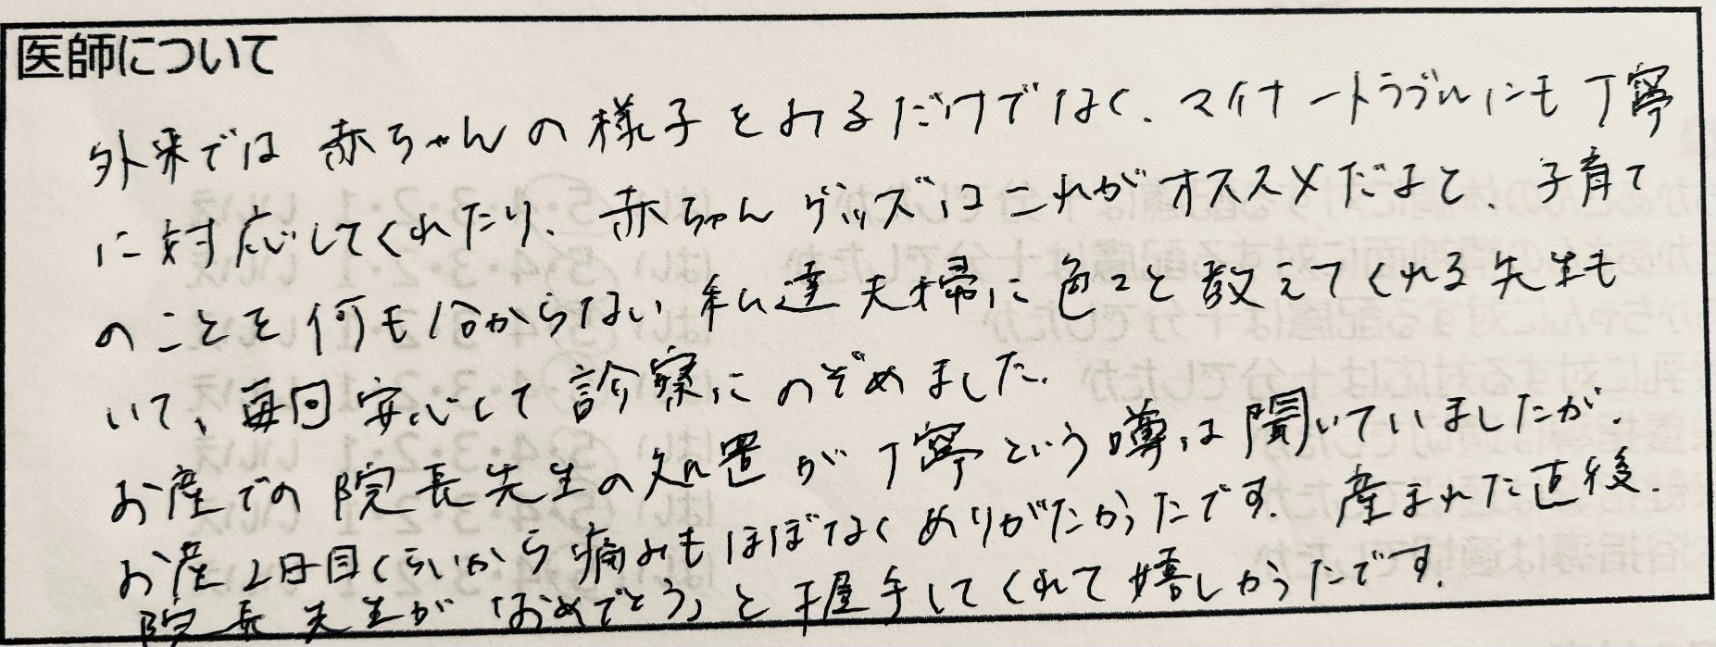 医師について
外来では赤ちゃんの様子をみるだけでなく、マイナートラブルにも丁寧
に対応してくれたり、赤ちゃんグッズはこれがオススメだよと、子育て
のことを何も分からない私達夫婦に色々と教えてくれる先生も
いて、毎回安心して診察にのぞめました。
お産での院長先生の処置が丁寧という噂は聞いていましたが、
お産2日目くらいから痛みもほぼなくありがたかったです。産まれた直後、
院長先生が「おめでとう」と握手してくれて嬉しかったです。